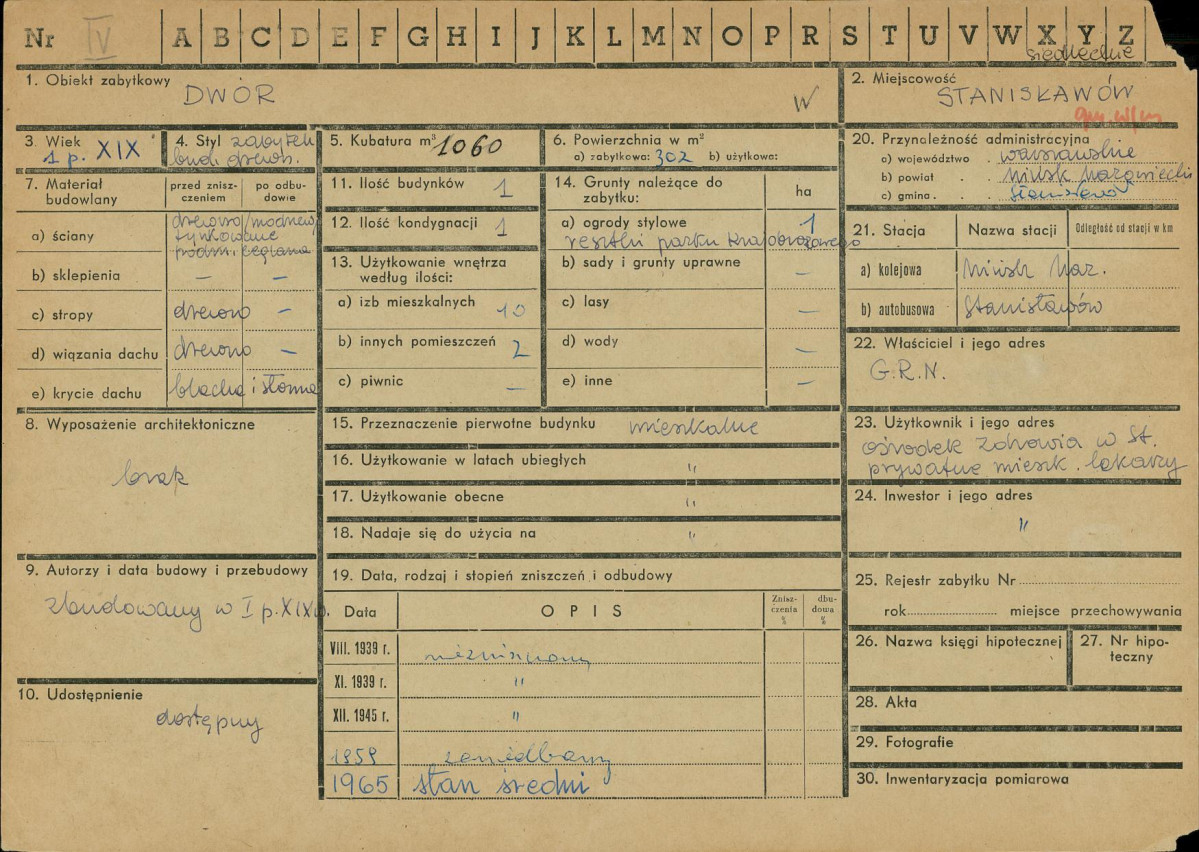 Nr IV A B C D E F G H I J K L M N O P R S T U V W X Y Z
siedleckie
1. Obiekt zabytkowy
DWÓR
W
2. Miejscowość
STANISŁAWÓW
3. Wiek
1 p. XIX
4. Styl zabytek
bud. drewn.
5. Kubatura m³ 1060
6. Powierzchnia w m²
a) zabytkowa: 302 b) użytkowa:
7. Materiał budowlany
przed zniszczeniem
po odbudowie
a) ściany
drewno/modrzew/
tynkowane
podm. ceglana
b) sklepienia – –
c) stropy drewno –
d) wiązania dachu drewno –
e) krycie dachu blacha i słoma
8. Wyposażenie architektoniczne
brak
9. Autorzy i data budowy i przebudowy
zbudowany w I p. XIX w.
10. Udostępnienie
dostępny
11. Ilość budynków 1
12. Ilość kondygnacji 1
13. Użytkowanie wnętrza
według ilości:
a) izb mieszkalnych 10
b) innych pomieszczeń 2
c) piwnic –
14. Grunty należące do
zabytku:
ha
a) ogrody stylowe 1
resztki parku krajobrazowego
b) sady i grunty uprawne –
c) lasy –
d) wody –
e) inne –
15. Przeznaczenie pierwotne budynku mieszkalne
16. Użytkowanie w latach ubiegłych "
17. Użytkowanie obecne "
18. Nadaje się do użycia na "
19. Data, rodzaj i stopień zniszczeń i odbudowy
Data
OPIS
Zniszczenia %
dbudowa %
VIII. 1939 r. niezniszczony
XI. 1939 r. "
XII. 1945 r. "
1959 zaniedbany
1965 stan średni
20. Przynależność administracyjna
a) województwo . warszawskie
b) powiat . . Mińsk Mazowiecki
c) gmina . . Stanisławów
21. Stacja
Nazwa stacji
Odległość od stacji w km
a) kolejowa Mińsk Maz.
b) autobusowa Stanisławów
22. Właściciel i jego adres
G.R.N.
23. Użytkownik i jego adres
Ośrodek Zdrowia w St.
prywatne mieszk. lekarzy
24. Inwestor i jego adres
"
25. Rejestr zabytku Nr
rok miejsce przechowywania
26. Nazwa księgi hipotecznej
27. Nr hipoteczny
28. Akta
29. Fotografie
30. Inwentaryzacja pomiarowa